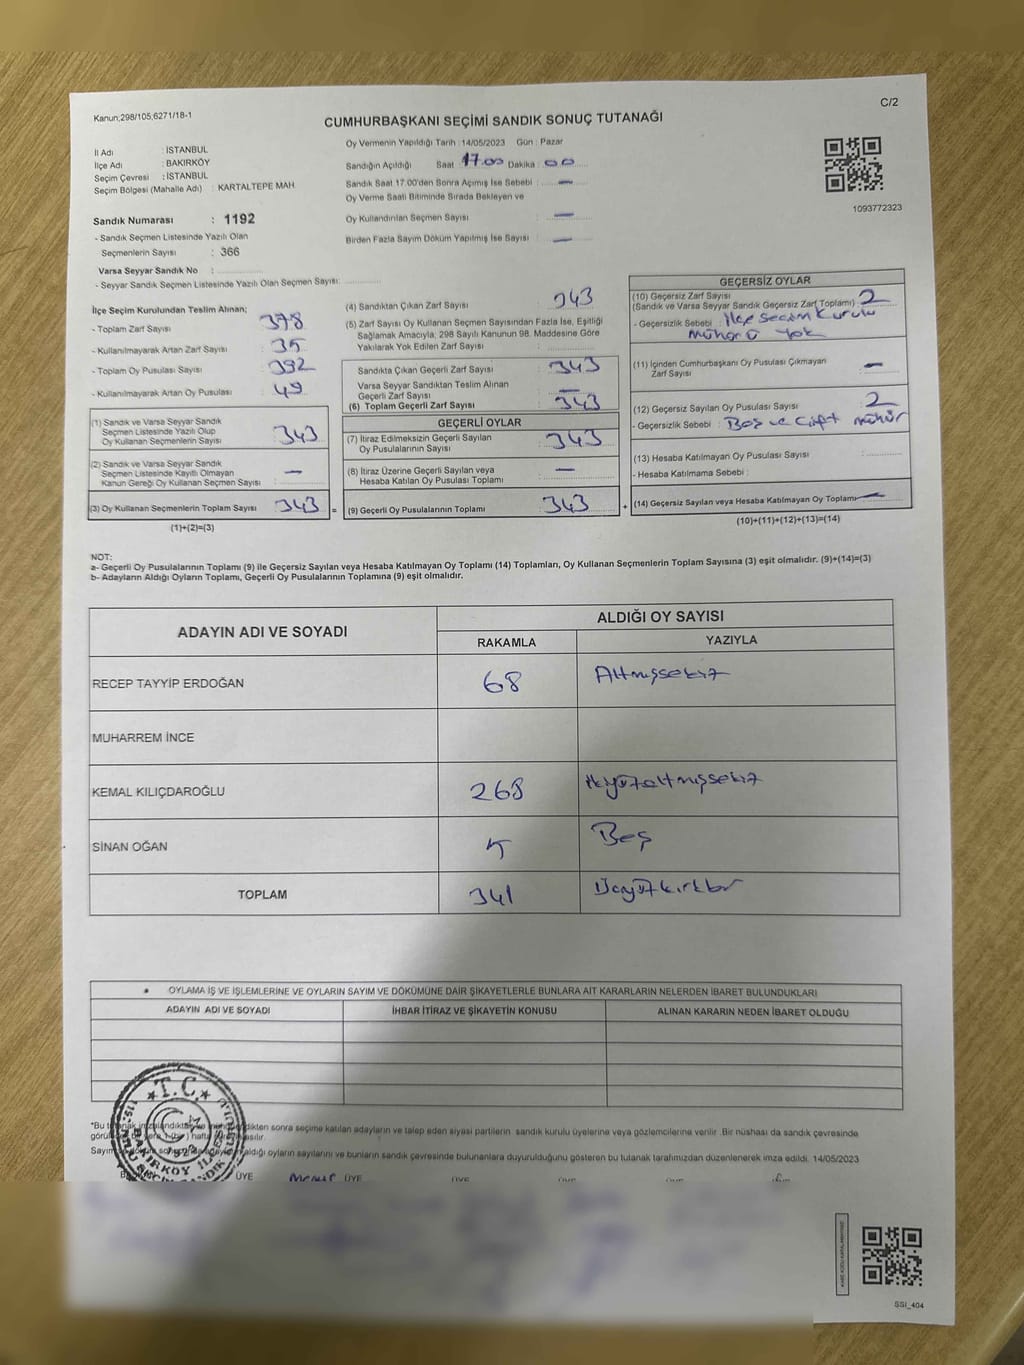 Kanun;298/105;6271/18-1
C/2
CUMHURBAŞKANI SEÇİMİ SANDIK SONUÇ TUTANAĞI
İl Adı : İSTANBUL
İlçe Adı : BAKIRKÖY
Seçim Çevresi : İSTANBUL
Seçim Bölgesi (Mahalle Adı) : KARTALTEPE MAH
Sandık Numarası : 1192
- Sandık Seçmen Listesinde Yazılı Olan
Seçmenlerin Sayısı : 366
Varsa Seyyar Sandık No :
- Seyyar Sandık Seçmen Listesinde Yazılı Olan Seçmen Sayısı:
Oy Vermenin Yapıldığı Tarih :14/05/2023 Gün : Pazar
Sandığın Açıldığı Saat 17.00 Dakika 00
Sandık Saat 17.00'den Sonra Açımış İse Sebebi : —
Oy Verme Saati Bitiminde Sırada Bekleyen ve
Oy Kullandırılan Seçmen Sayısı : —
Birden Fazla Sayım Döküm Yapılmış İse Sayısı : —
1093772323
İlçe Seçim Kurulundan Teslim Alınan;
- Toplam Zarf Sayısı : 378
- Kullanılmayarak Artan Zarf Sayısı : 35
- Toplam Oy Pusulası Sayısı : 392
- Kullanılmayarak Artan Oy Pusulası : 49
(1) Sandık ve Varsa Seyyar Sandık
Seçmen Listesinde Yazılı Olup
Oy Kullanan Seçmenlerin Sayısı : 343
(2) Sandık ve Varsa Seyyar Sandık
Seçmen Listesinde Kayıtlı Olmayan
Kanun Gereği Oy Kullanan Seçmen Sayısı : —
(3) Oy Kullanan Seçmenlerin Toplam Sayısı : 343
(1)+(2)=(3)
(4) Sandıktan Çıkan Zarf Sayısı : 343
(5) Zarf Sayısı Oy Kullanan Seçmen Sayısından Fazla İse, Eşitliği
Sağlamak Amacıyla, 298 Sayılı Kanunun 98. Maddesine Göre
Yakılarak Yok Edilen Zarf Sayısı :
Sandıkta Çıkan Geçerli Zarf Sayısı : 343
Varsa Seyyar Sandıktan Teslim Alınan
Geçerli Zarf Sayısı : —
(6) Toplam Geçerli Zarf Sayısı : 343
GEÇERLİ OYLAR
(7) İtiraz Edilmeksizin Geçerli Sayılan
Oy Pusulalarının Sayısı : 343
(8) İtiraz Üzerine Geçerli Sayılan veya
Hesaba Katılan Oy Pusulası Toplamı : —
= (9) Geçerli Oy Pusulalarının Toplamı : 343
GEÇERSİZ OYLAR
(10) Geçersiz Zarf Sayısı
(Sandık ve Varsa Seyyar Sandık Geçersiz Zarf Toplamı) : 2
- Geçersizlik Sebebi : İlçe Seçim Kurulu
Mühürü Yok
(11) İçinden Cumhurbaşkanı Oy Pusulası Çıkmayan
Zarf Sayısı : —
(12) Geçersiz Sayılan Oy Pusulası Sayısı : 2
- Geçersizlik Sebebi : Boş ve Çift mühür
(13) Hesaba Katılmayan Oy Pusulası Sayısı :
- Hesaba Katılmama Sebebi :
+ (14) Geçersiz Sayılan veya Hesaba Katılmayan Oy Toplamı —
(10)+(11)+(12)+(13)=(14)
NOT:
a- Geçerli Oy Pusulalarının Toplamı (9) ile Geçersiz Sayılan veya Hesaba Katılmayan Oy Toplamı (14) Toplamları, Oy Kullanan Seçmenlerin Toplam Sayısına (3) eşit olmalıdır. (9)+(14)=(3)
b- Adayların Aldığı Oyların Toplamı, Geçerli Oy Pusulalarının Toplamına (9) eşit olmalıdır.
ADAYIN ADI VE SOYADI
ALDIĞI OY SAYISI
RAKAMLA YAZIYLA
RECEP TAYYİP ERDOĞAN 68 Altmışsekiz
MUHARREM İNCE
KEMAL KILIÇDAROĞLU 268 İkiyüzaltmışsekiz
SİNAN OĞAN 5 Beş
TOPLAM 341 Üçyüzkırkbir
* OYLAMA İŞ VE İŞLEMLERİNE VE OYLARIN SAYIM VE DÖKÜMÜNE DAİR ŞİKAYETLERLE BUNLARA AİT KARARLARIN NELERDEN İBARET BULUNDUKLARI
ADAYIN ADI VE SOYADI İHBAR İTİRAZ VE ŞİKAYETİN KONUSU ALINAN KARARIN NEDEN İBARET OLDUĞU
*Bu sonra seçime katılan adayların ve talep eden siyasi partilerin sandık kurulu üyelerine veya gözlemcilerine verilir .Bir nüshası da sandık çevresinde
oyların sayılarını ve bunların sandık çevresinde bulunanlara duyurulduğunu gösteren bu tutanak tarafımızdan düzenlenerek imza edildi. 14/05/2023
T.C.
ÜYE ÜYE
SSI_404